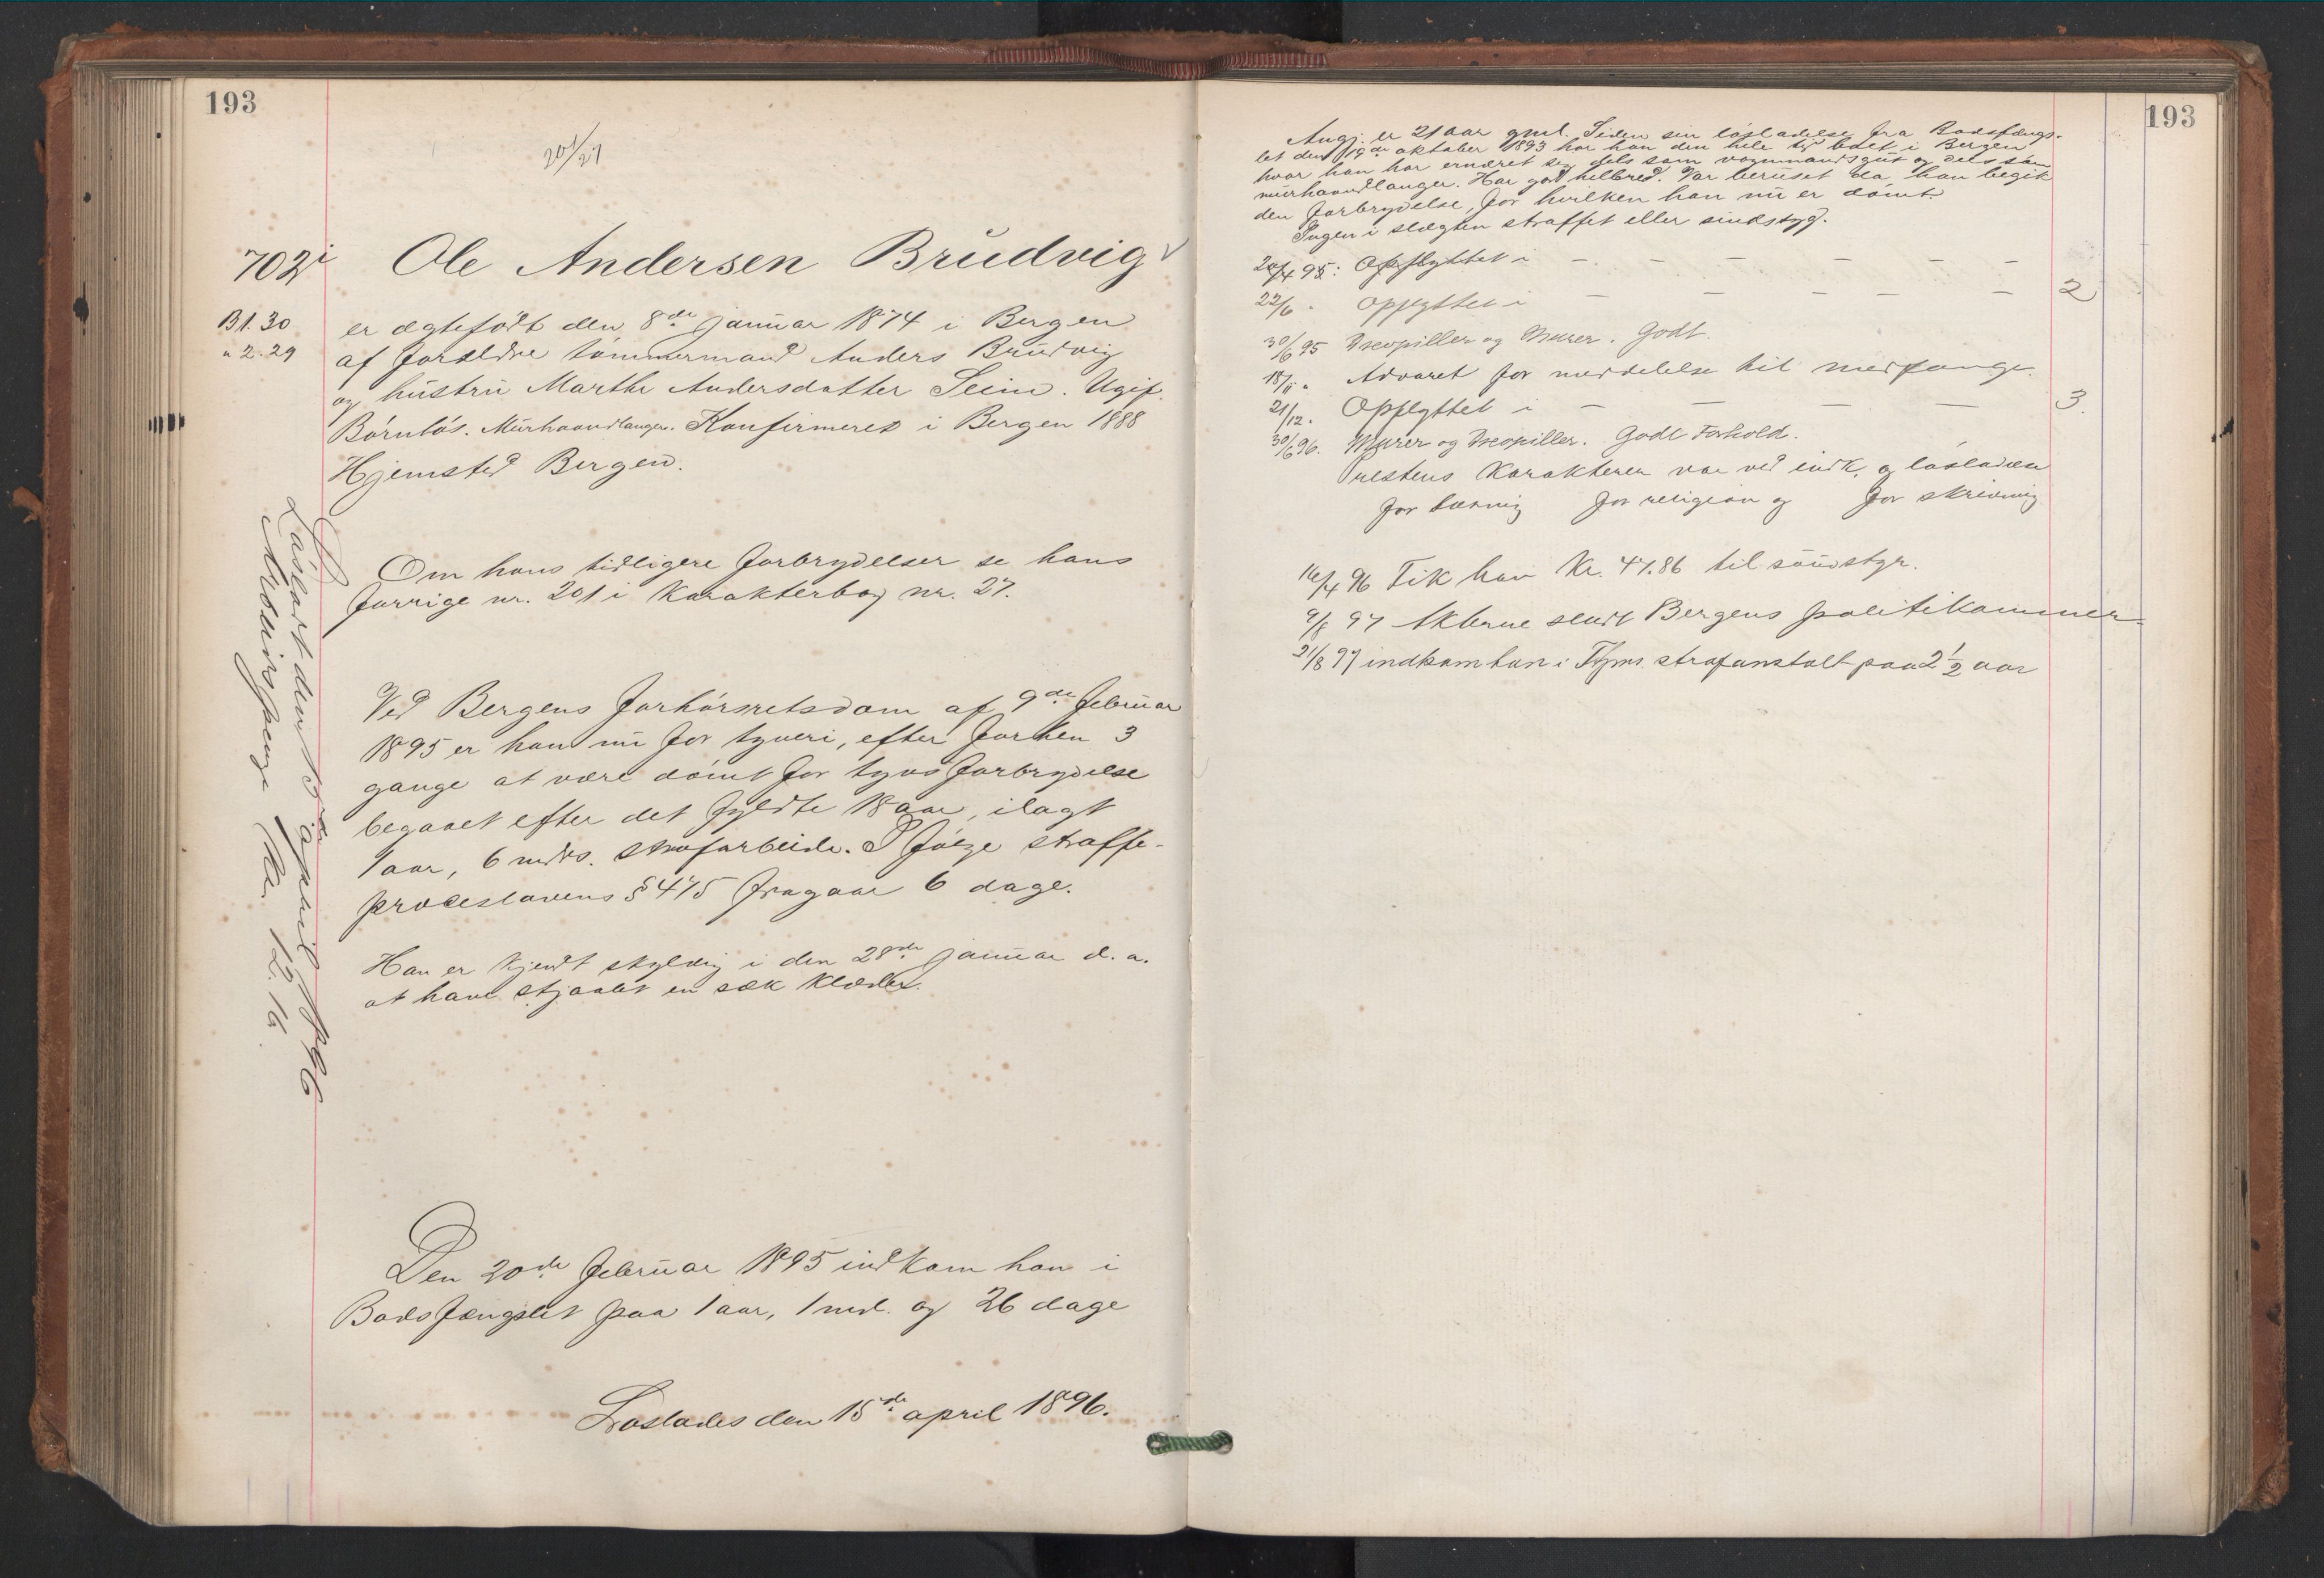 193
201/27
702 i
Ole Andersen Brudvig
B 1. 30
" 2. 29
er ægtefødt den 8de januar 1874 i Bergen
af forældre tømmermand Anders Brudvig
og hustru Marthe Andersdatter Seim. Ugift.
Børnløs. Murhaandlanger. Konfirmeret i Bergen 1888
Hjemsted Bergen.
Om hans tidligere forbrydelser se hans
forrige nr. 201 i Karakterbog nr. 27.
Ved Bergens forhørsretsdom af 9de februar
1895 er han nu for tyveri, efter forhen 3
gange at være dømt for tyvsforbrydelse
begaaet efter det fyldte 18 aar, ilagt
1 aar, 6 mdrs. strafarbeide. I følge straffe-
proceslovens § 475 fragaar 6 dage.
Han er kjendt skyldig i den 28de januar d. a.
at have stjaalet en sæk klæder.
Den 20de februar 1895 indkom han i
Bodsfængslet paa 1 aar, 1 md. og 26 dage
Løslades den 15de april 1896.
Løsladt den 15de april 1896
Arbeidspenge Kr. 12.16
193
Angj. er 21 aar gml. Siden sin løsladelse fra Bodsfængs-
let den 19de oktober 1893 har han den hele tid boet i Bergen
hvor han har ernæret sig dels som vognmandsgut og dels som
murhaandlanger. Har god helbred. Var beruset da han begik
den forbrydelse, for hvilken han nu er dømt.
Ingen i slægten straffet eller sindssyg.
20/4 95: Opflyttet i — — — — — —
22/6 " Opflyttet i — — — — — 2
30/6 95 Drevpiller og Murer. Godt.
18/11 " Advaret for meddelelse til medfange.
21/12 " Opflyttet i — — — — 3.
30/6 96. Murer og Drevpiller. Godt Forhold.
Prestens Karakterer var ved indk. og løsladelse
for læsning for religion og for skrivning
16/4 96 Fik han Kr. 47.86 til
9/8 97 Akterne sendt Bergens politikammer
21/8 97 indkom han i Thjms. strafanstalt paa 2 1/2 aar